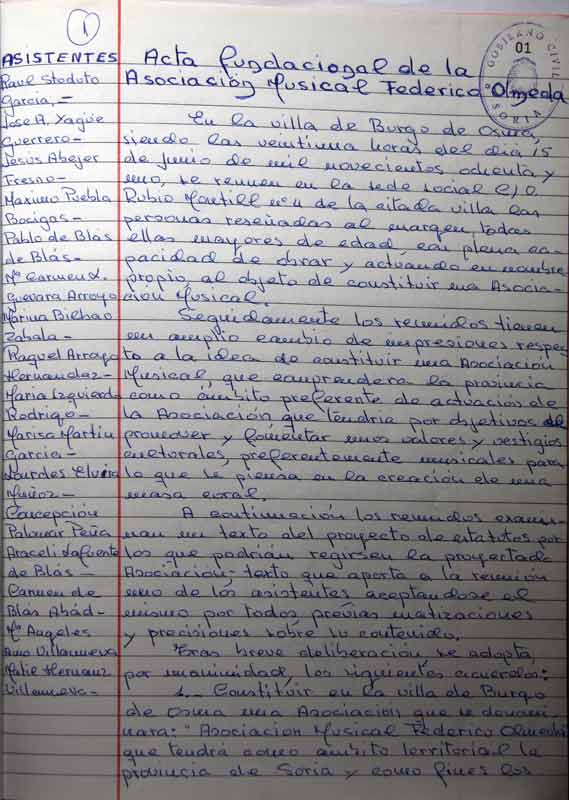 1
GOBIERNO CIVIL
01
SORIA
ASISTENTES
Raul Stoduto
Garcia,-
Jose A. Yagüe
Guerrero-
Jesus Abejer
Fresno-
Maximo Puebla
Bocigas-
Pablo de Blás
de Blás-
Mª Carmen L.
Guevara Arroyo
Marina Bilbao
Zabala-
Raquel Arroyo
Hernandez-
Maria Izquierdo
Rodrigo-
Marisa Martin
Garcia-
Lourdes Elvira
Muñoz-
Concepción
Palomar Peña
Araceli Lafuente
de Blás-
Carmen de
Blás Abád-
Mª Angeles
Amo Villanueva
Maite Hernanz
Villanueva-
Acta fundacional de la
Asociación Musical Federico Olmeda
En la villa de Burgo de Osma,
siendo las veintiuna horas del dia 15
de junio de mil novecientos ochenta y
uno, se reunen en la sede social C/ O.
Rubio Montill nº de la citada villa las
personas reseñadas al margen, todas
ellas mayores de edad, con plena ca-
pacidad de obrar y actuando en nombre
propio, al objeto de constituir una Asocia-
ción Musical.
Seguidamente los reunidos tienen
un amplio cambio de impresiones respec
to a la idea de constituir una Asociación
Musical, que comprendera la provincia
como ámbito preferente de actuación de
la Asociación, que tendria por objetivos el
promover y fomentar unos valores y vestigios
culturales, preferentemente musicales para
lo que se piensa en la creación de una
masa coral.
A continuación los reunidos exami-
nan un texto del proyecto de estatutos por
los que podrián regirse la proyectada
Asociación; texto que aporta a la reunión
uno de los asistentes aceptandose el
mismo por todos, prévias matizaciones
y precisiones sobre su contenido.
Tras breve deliberación se adopta,
por unanimidad, los siguientes acuerdos:
1.- Constituir en la villa de Burgo
de Osma una Asociación que se denomi-
nara: "Asociacion Musical Federico Olmeda"
que tendrá como ámbito territorial la
provincia de Soria y como fines los